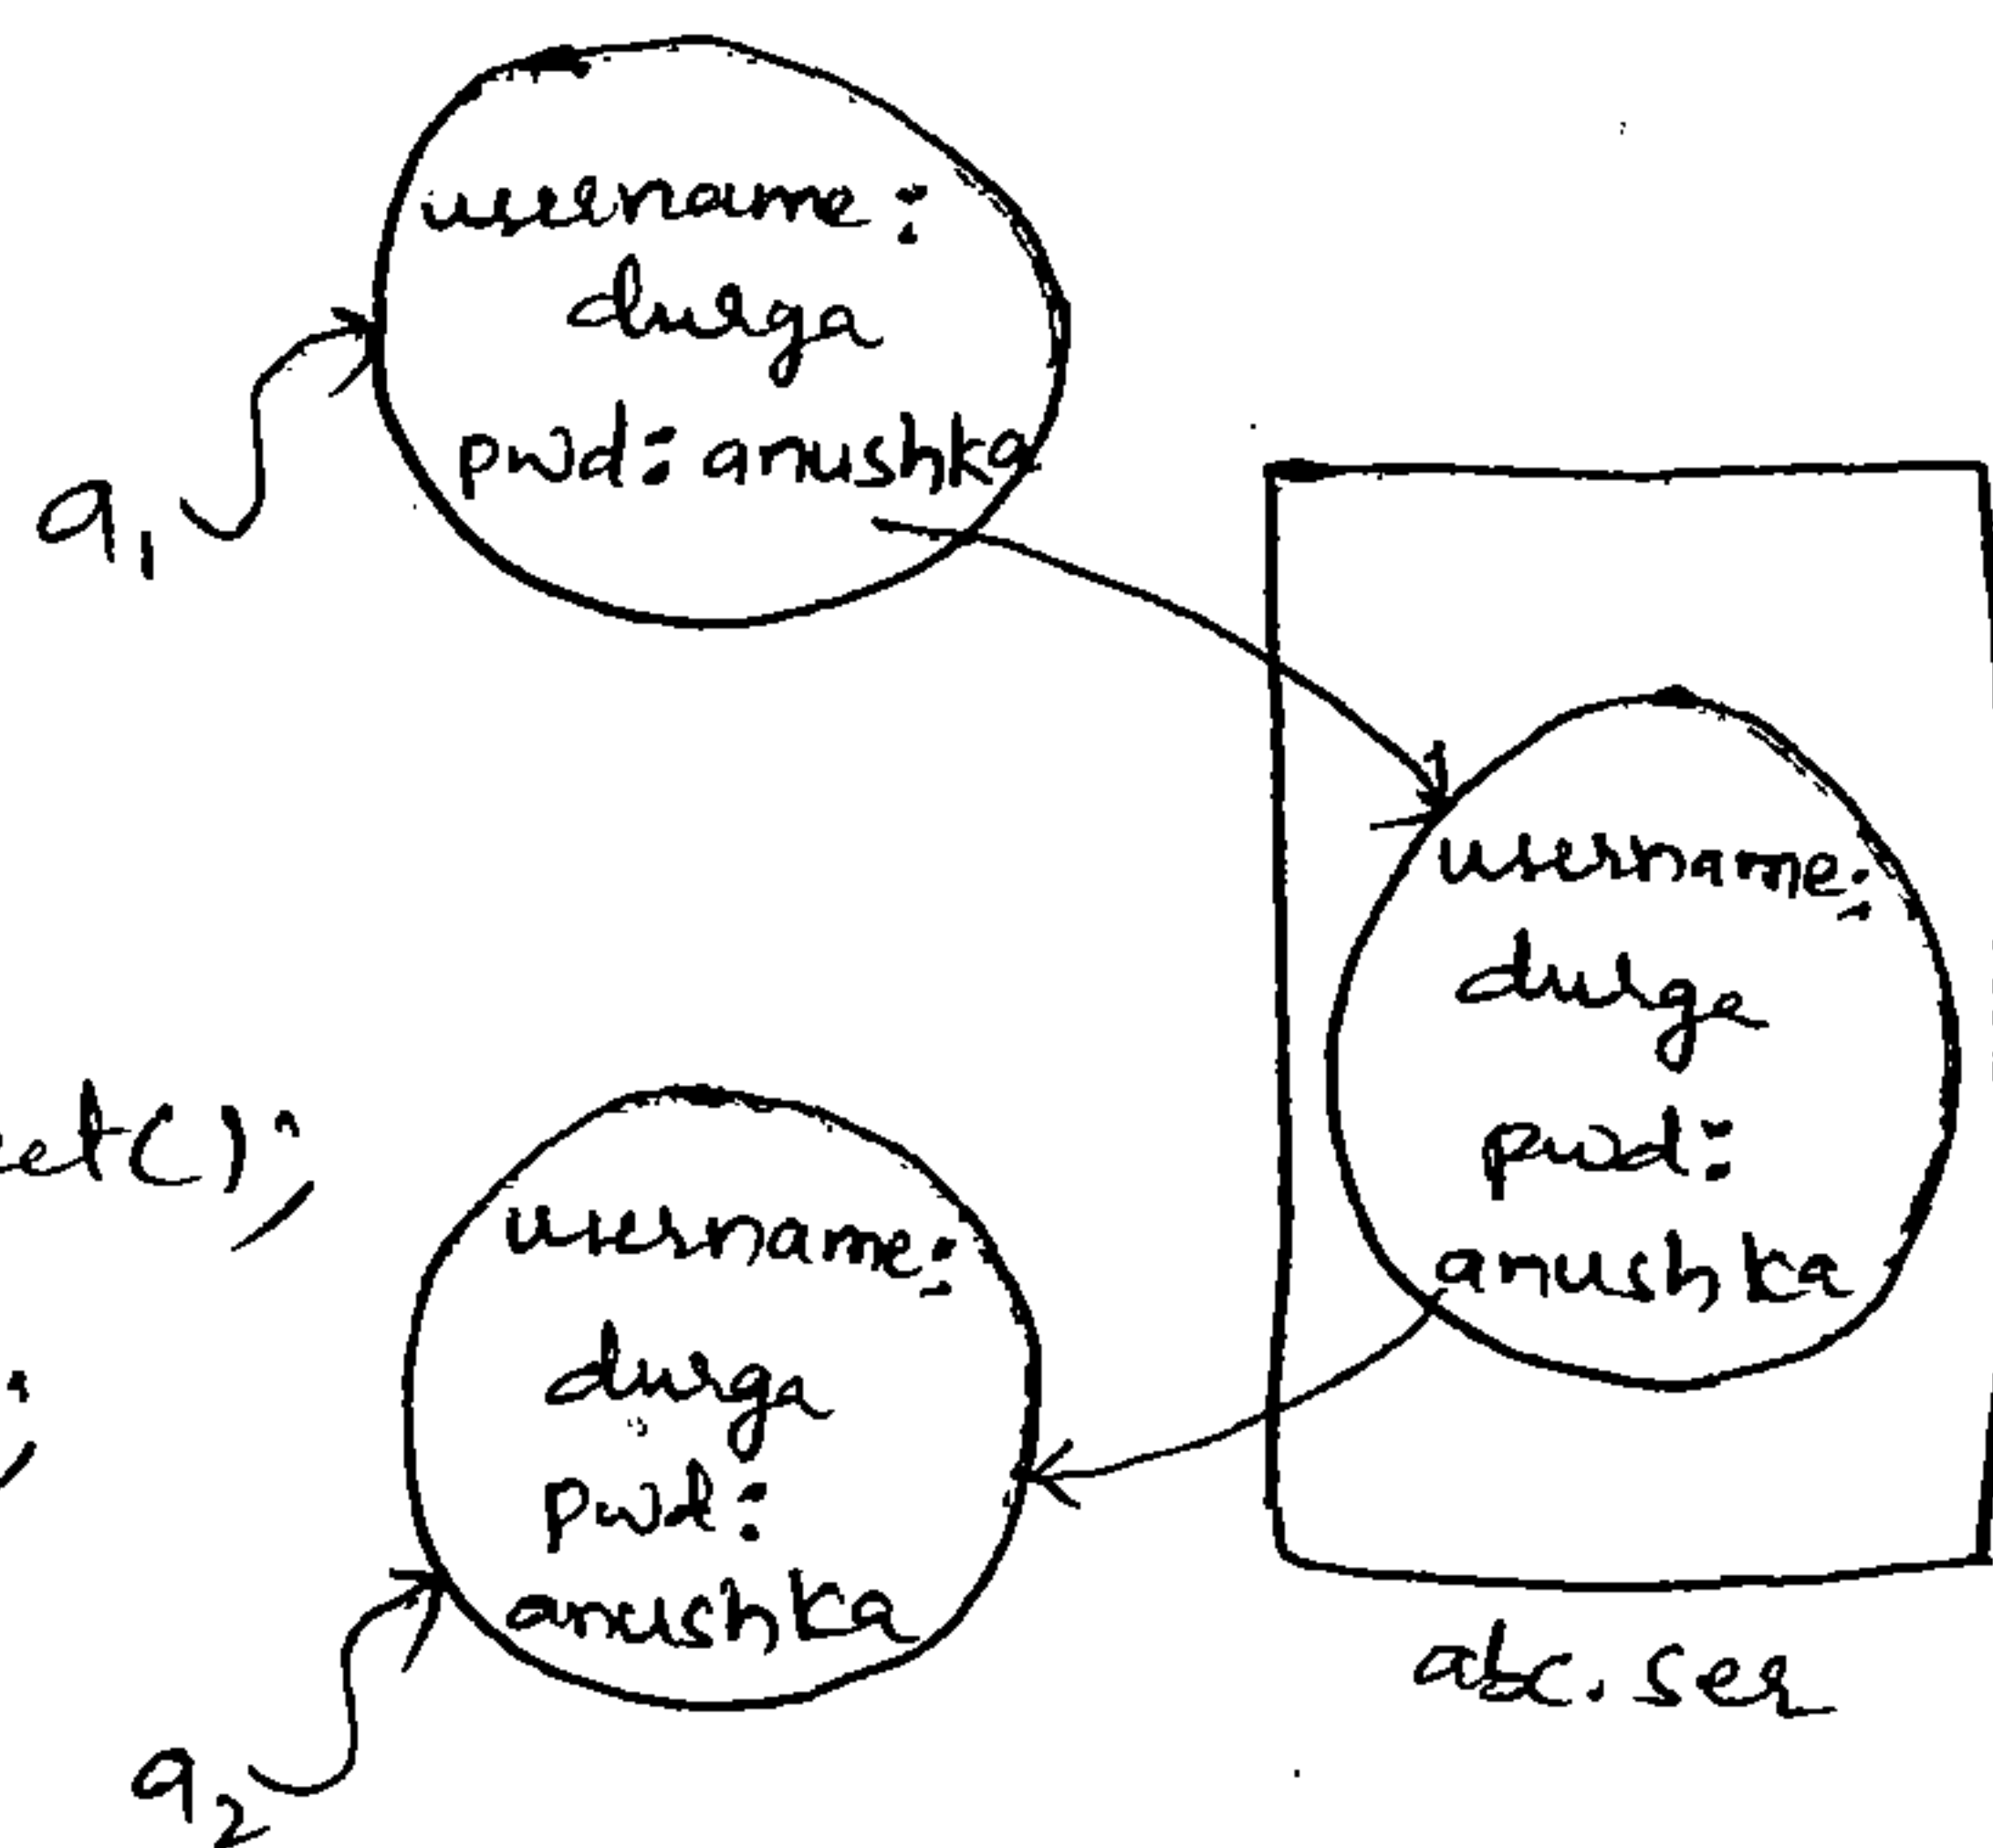 username :
durga
pwd : anushka
a1
username :
durga
pwd :
anushka
et();
;
username :
durga
pwd :
anushka
a2
abc.ser